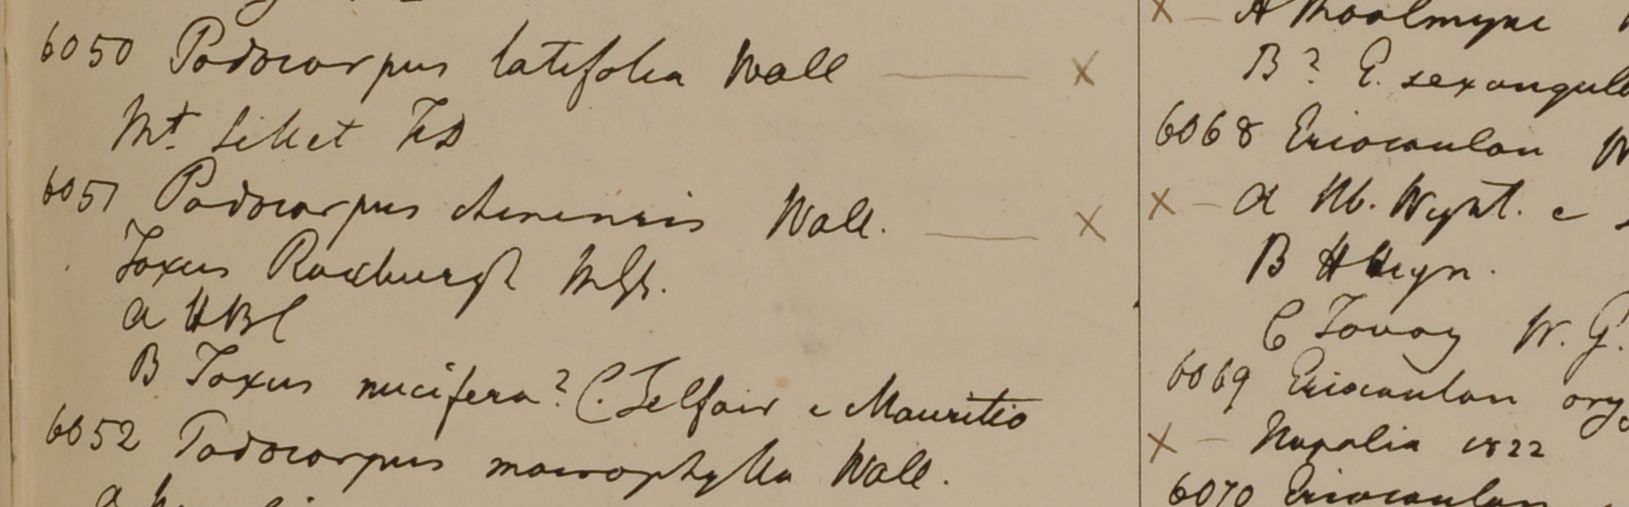 6050 Podocarpus latifolia Wall — ×
Mt. Sillet FD
6051 Podocarpus chinensis Wall. — ×
Taxus Roxburgh
a HBC
B Taxus nucifera? C. Telfair e Mauritio
6052 Podocarpus macrophylla Wall.
× — A
B? E. sexangula
6068 Eriocaulon W
× — a Hb. Wight. e
B HHeyn.
C Tavoy W. G.
6069 Eriocaulon ory
× — Napalia 1822
6070 Eriocaulon